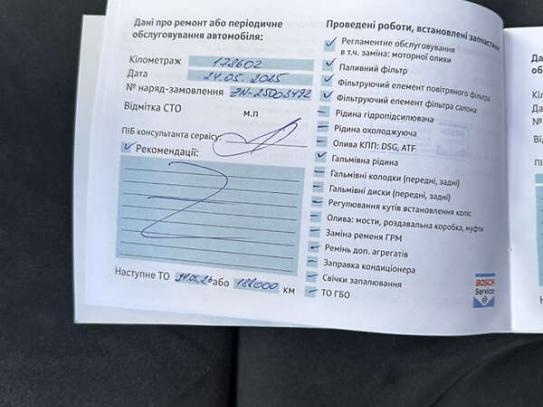 Дані про ремонт або періодичне
обслуговування автомобіля:
Кілометраж 178602
Дата 24.05.2025
№ наряд-замовлення ЗН-25003492
Відмітка СТО м.п
ПІБ консультанта сервісу:
Рекомендації:
Наступне ТО або 188000 км
Проведені роботи, встановлені запчастини
Регламентне обслуговування
в т.ч. заміна: моторної оливи
Паливний фільтр
Фільтруючий елемент повітряного фільтра
Фільтруючий елемент фільтра салона
Рідина гідропідсилювача
Рідина охолоджуюча
Олива КПП: DSG, ATF
Гальмівна рідина
Гальмівні колодки (передні, задні)
Гальмівні диски (передні, задні)
Регулювання кутів встановлення коліс
Олива: мости, роздавальна коробка, муфти
Заміна ременя ГРМ
Ремінь доп. агрегатів
Заправка кондиціонера
Свічки запалювання
ТО ГБО
BOSCH
Service